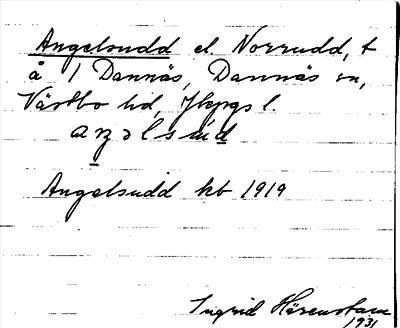 Angelsudd el. Norrudd, t
å 1 Dannäs, Dannäs sn,
Västbo hd, Jkpgs l.
Angelsudd kb 1919
Ingrid Härenstam
1931